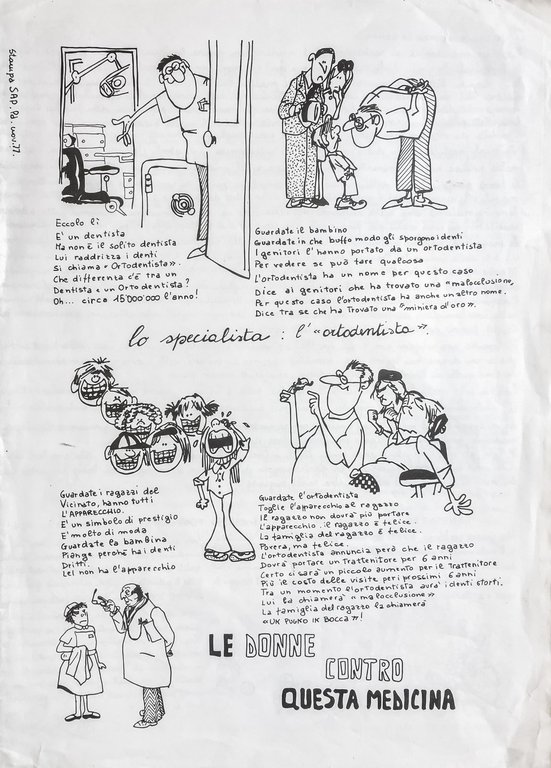 Stampa SAD. Pd. nov. 77.
Eccolo lì
E' un dentista
Ma non è il solito dentista
Lui raddrizza i denti
Si chiama «Ortodentista».
Che differenza c'è tra un
Dentista e un Ortodentista?
Oh... circa 15'000'000 l'anno!
Guardate il bambino
Guardate in che buffo modo gli sporgono i denti
I genitori l'hanno portato da un ortodentista
Per vedere se può fare qualcosa
L'ortodentista ha un nome per questo caso
Dice ai genitori che ha trovato una «malocclusione»
Per questo caso l'ortodentista ha anche un altro nome.
Dice tra se che ha trovato una "miniera d'oro".
lo specialista: l'«ortodentista».
Guardate i ragazzi del
Vicinato, hanno tutti
L'APPARECCHIO.
E' un simbolo di prestigio
E' molto di moda
Guardate la bambina
Piange perchè ha i denti
Dritti.
Lei non ha l'apparecchio
Guardate l'ortodentista
Toglie l'apparecchio al ragazzo
Il ragazzo non dovrà più portare
L'apparecchio. il ragazzo è felice.
La famiglia del ragazzo è felice.
Povera, ma felice.
L'ortodentista annuncia però che il ragazzo
Dovrà portare un Trattenitore per 6 anni
Certo ci sarà un piccolo aumento per il Trattenitore
Più il costo delle visite per i prossimi 6 anni
Tra un momento l'ortodentista aurà i denti storti.
Lui la chiamerà «malocclusione»
La famiglia del ragazzo la chiamerà
«UN PUGNO IN BOCCA»!
LE DONNE
CONTRO
QUESTA MEDICINA